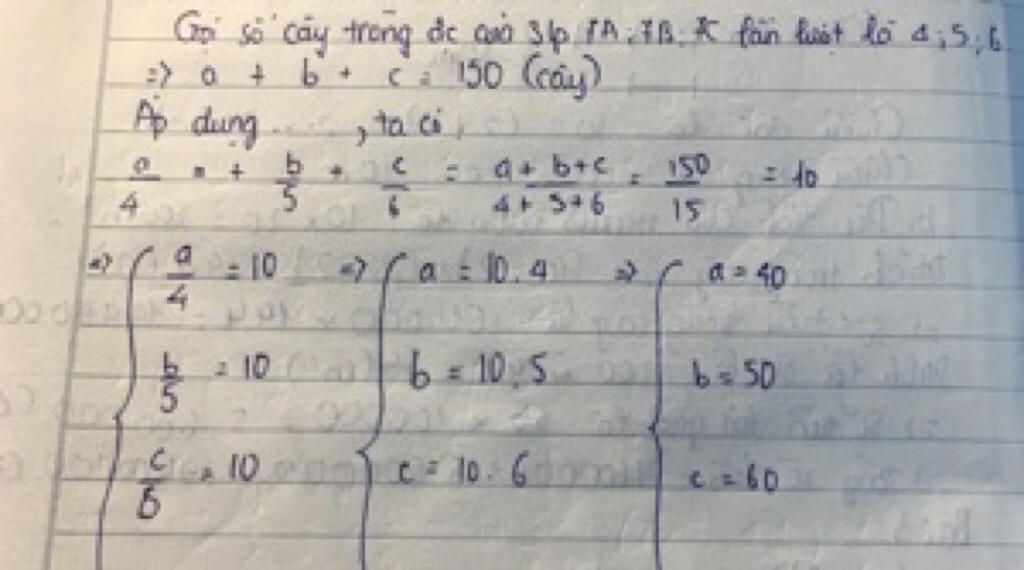 Gọi số cây trồng đc của 3 lớp 7A; 7B; 7C lần lượt là 4; 5; 6
=> a + b + c = 150 (cây)
Áp dụng ......, ta có
a/4 = + b/5 + c/6 = a+b+c/4+5+6 = 150/15 = 10
=> { a/4 = 10 => { a = 10.4 => { a = 40
b/5 = 10 b = 10.5 b = 50
c/6 = 10 c = 10.6 c = 60